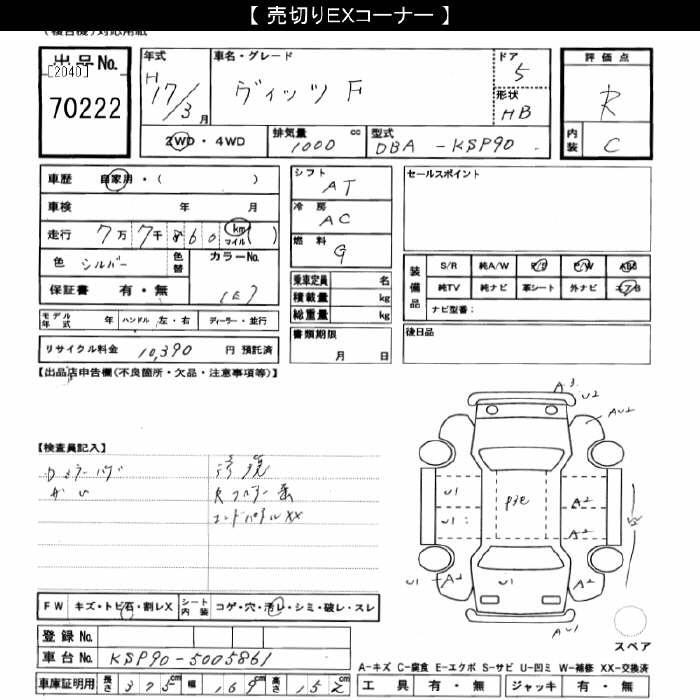 【 売切りEXコーナー 】
出品No.
[2040]
70222
年式
H
17/3 月
車名・グレード
ヴィッツ F
ドア
5
形状
HB
評価点
R
内装
C
2WD・4WD
排気量 cc
1000
型式
DBA - KSP90
車歴 自家用・( )
車検 年 月
走行 7万7千860 km マイル ( )
色 シルバー
色替
カラーNo.
1E7
保証書 有・無
シフト
AT
冷房
AC
燃料
G
乗車定員 名
積載量 kg
総重量 kg
セールスポイント
装備品
S/R 純A/W P/S P/W ABS
純TV 純ナビ 革シート 外ナビ エアB
ナビ型番:
モデル年式 年 ハンドル 左・右 ディーラー・並行
リサイクル料金 10,390 円 預託済
書類期限
月 日
後日品
【出品店申告欄(不良箇所・欠品・注意事項等)】
【検査員記入】
修復
エンドパネルXX
A3
U2
AU2
U1
A2
U1
A2
U1
A2
U1
A2
AU1
スペア
FW キズ・トビ石・割レX シート内装 コゲ・穴・汚レ・シミ・破レ・スレ
登録No.
車台No. KSP90-5005861
車庫証明用 長さ 375cm 幅 169cm 高さ 152cm
A-キズ C-腐食 E-エクボ S-サビ U-凹ミ W-補修 XX-交換済
工具 有・無 ジャッキ 有・無